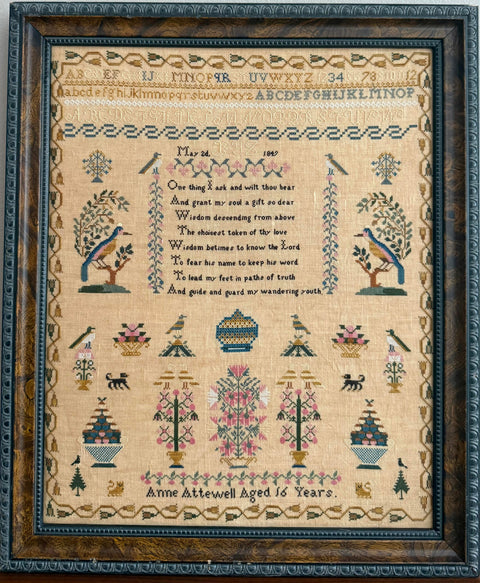 AB EF IJ MNOPQR UVWXYZ 34 78 12
abcdefghijklmnopqrstuvwxyz ABCDEFGHIJKLMNOP
May 2d. 1849
One thing I ask and wilt thou hear
And grant my soul a gift so dear
Wisdom descending from above
The choicest token of thy love
Wisdom betimes to know the Lord
To fear his name to keep his word
To lead my feet in paths of truth
And guide and guard my wandering youth
Anne Attewell Aged 16 Years.